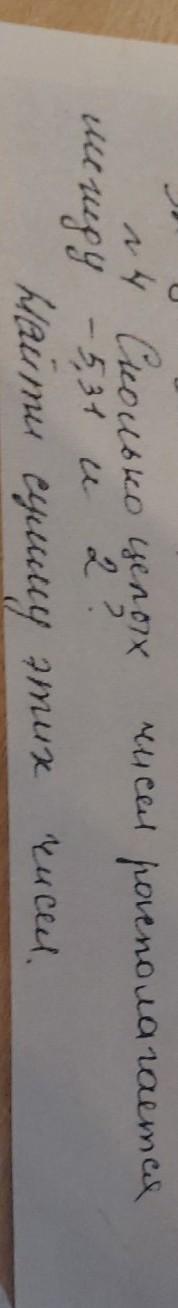 №4 Сколько целых чисел располагается
между -5,31 и 2?
Найти сумму этих чисел.